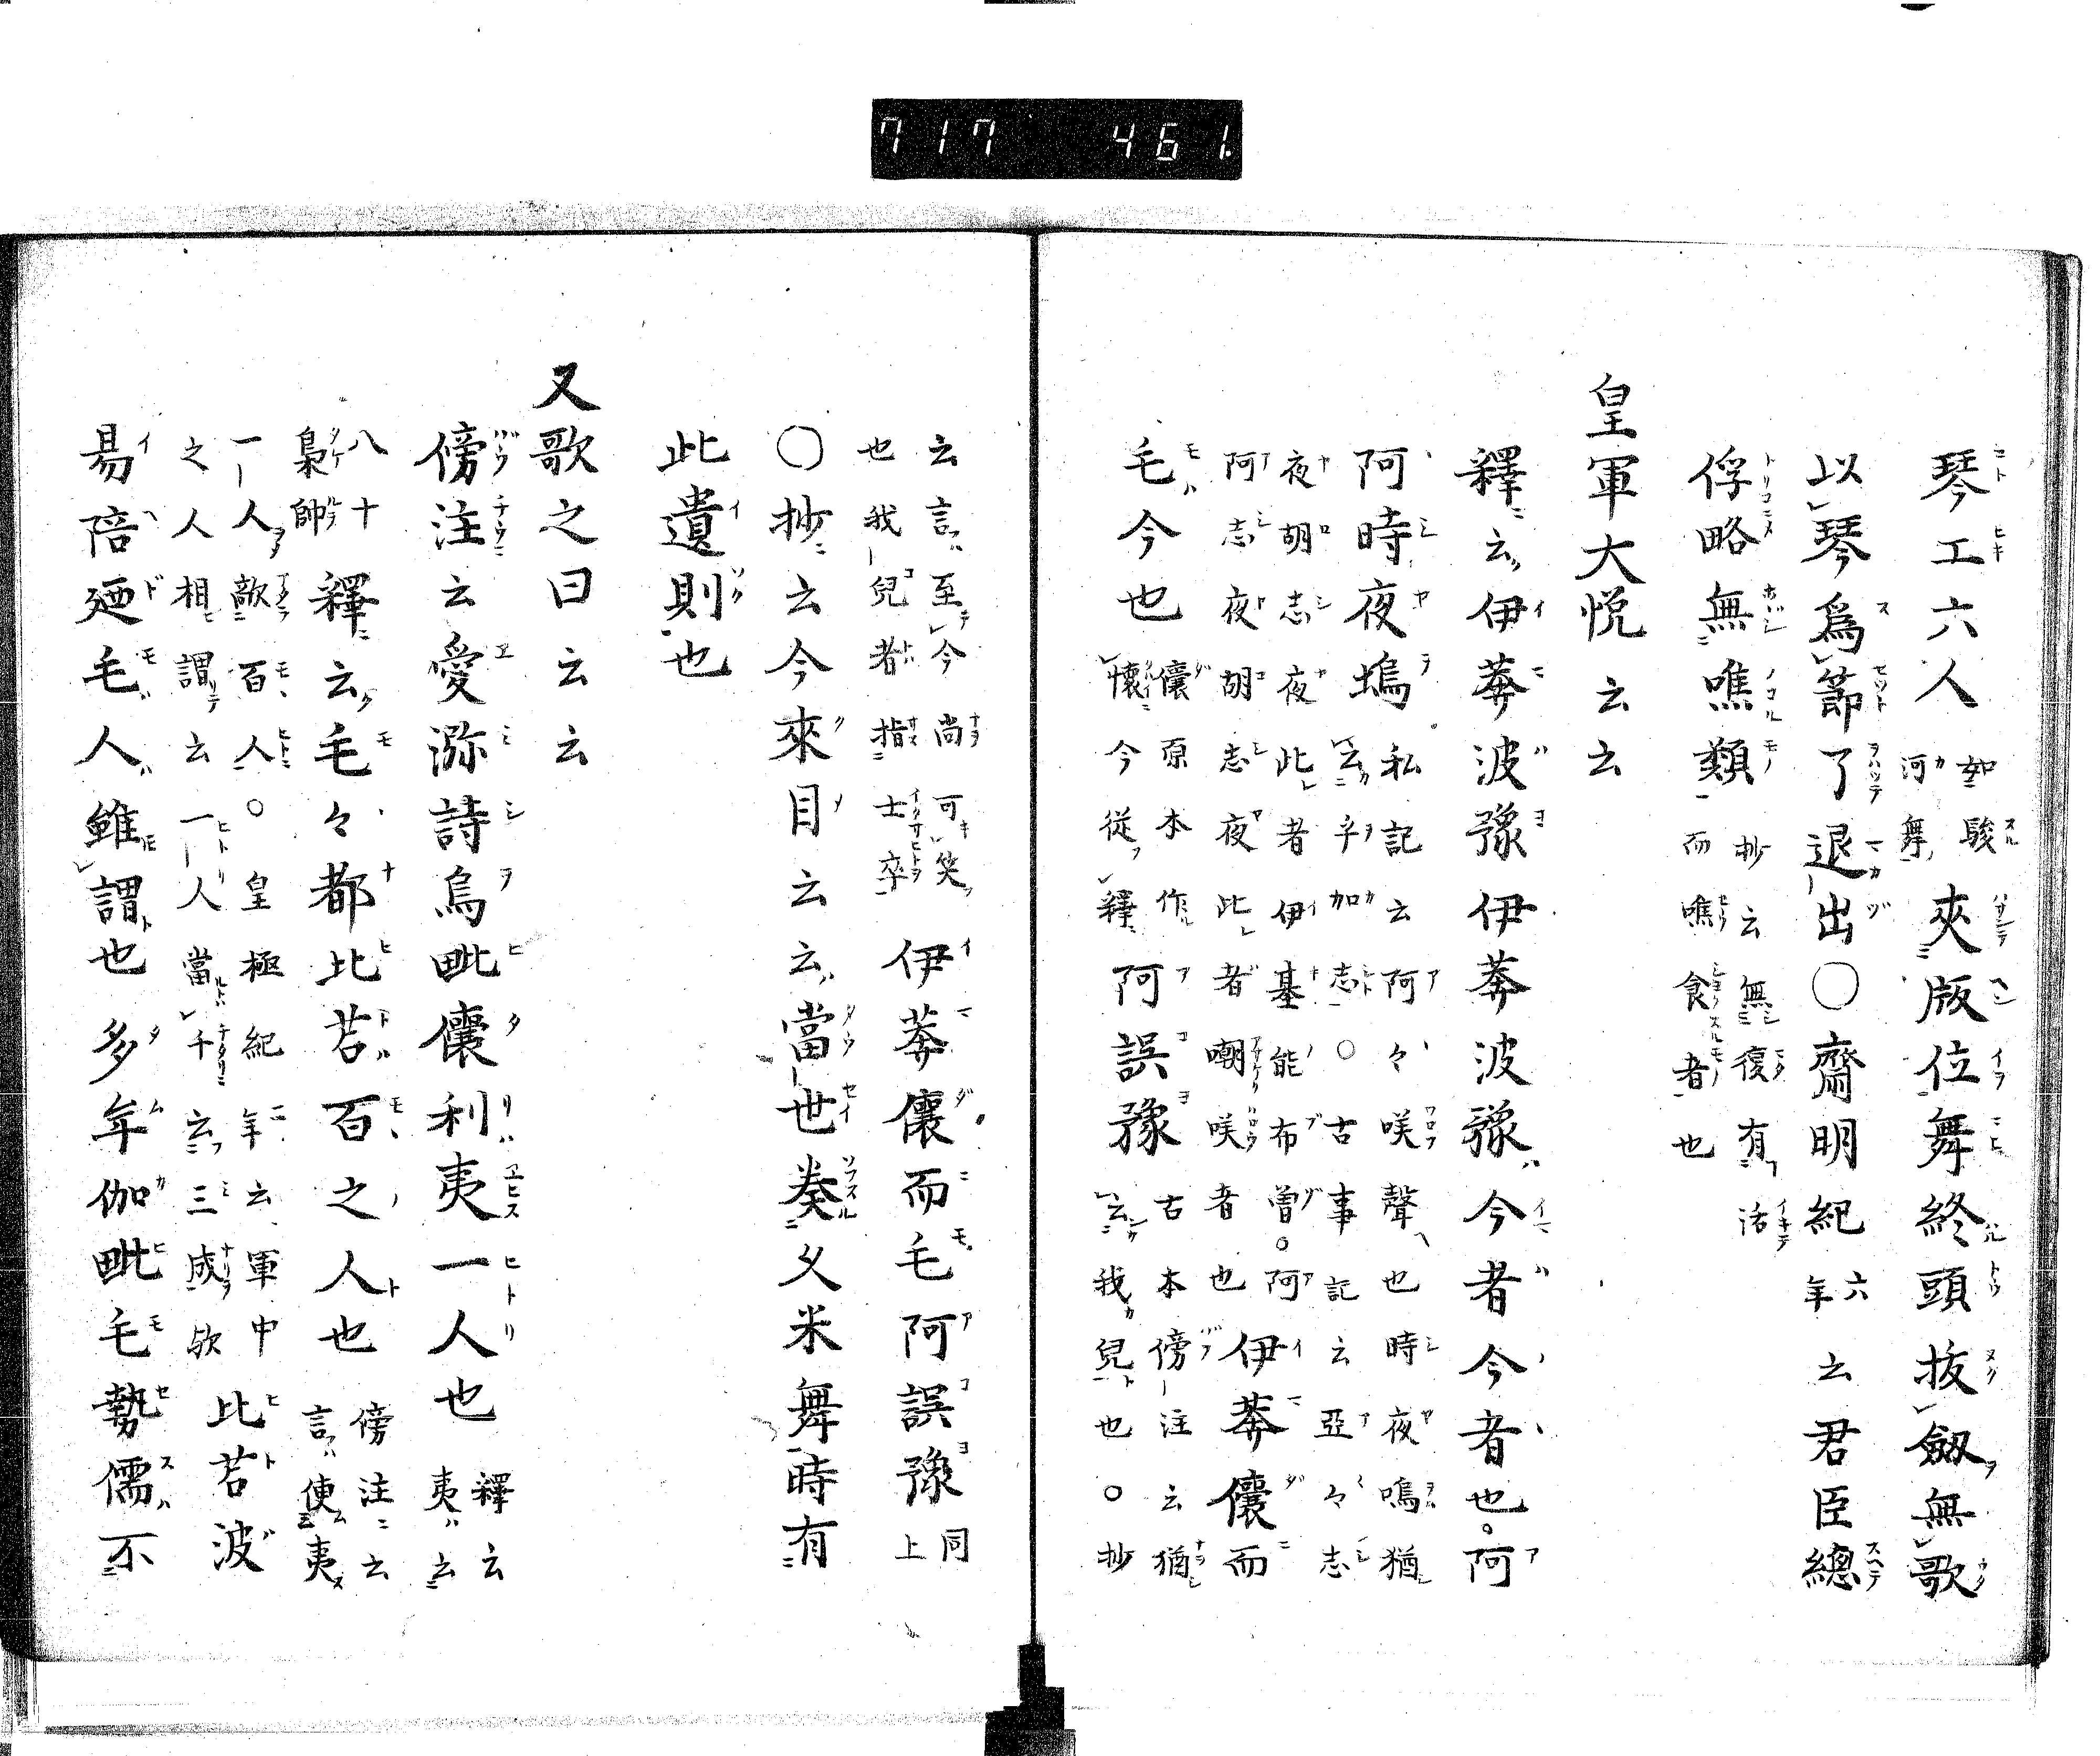 7 1 7　4 6 1.
琴工六人
如駿
河舞
夾版位舞終頭抜劔無歌
以琴爲節了退出〇齋明紀
六
年
云君臣總
俘略無噍類
抄云無復有活
而噍食者也
皇軍大悦云云
釋云伊莽波豫伊莽波豫今者今者也。阿
阿時夜塢
私記云阿々咲聲也時夜鳴猶
云乎加志〇古事記云亞々志
夜胡志夜此者伊基能布曽。阿
阿志夜胡志夜此者嘲咲者也
伊莽儾而
毛今也
儾原本作
懷今從釋
阿誤豫
古本傍注云猶
云我兒也〇抄
云言至今尚可笑
也我兒者指士卒
伊莽儾而毛阿誤豫
同
上
〇抄云今來目云云當世奏久米舞時有
此遺則也
又歌之曰云云
傍注云愛濔詩烏毗儾利夷一人也
釋云
夷云
八十
梟帥
釋云毛々都比苔百之人也
傍注云
言使夷
一人敵百人〇皇極紀二年云軍中
之人相謂云一人當千云三成歟
比苔波
易陪廼毛人雖謂也多牟伽毗毛勢儒不